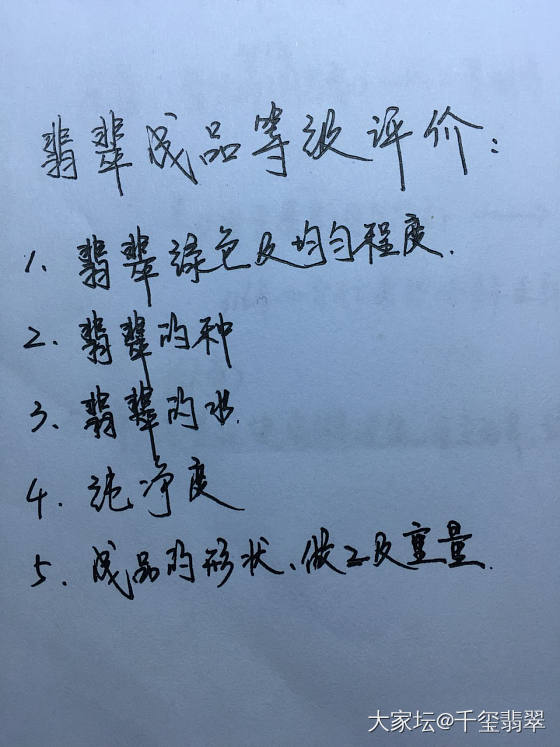 翡翠成品等级评价：
1、翡翠绿色及均匀程度.
2.翡翠的种
3.翡翠的水.
4.纯净度
5.成品的形状、做工及重量.
大家坛@千玺翡翠